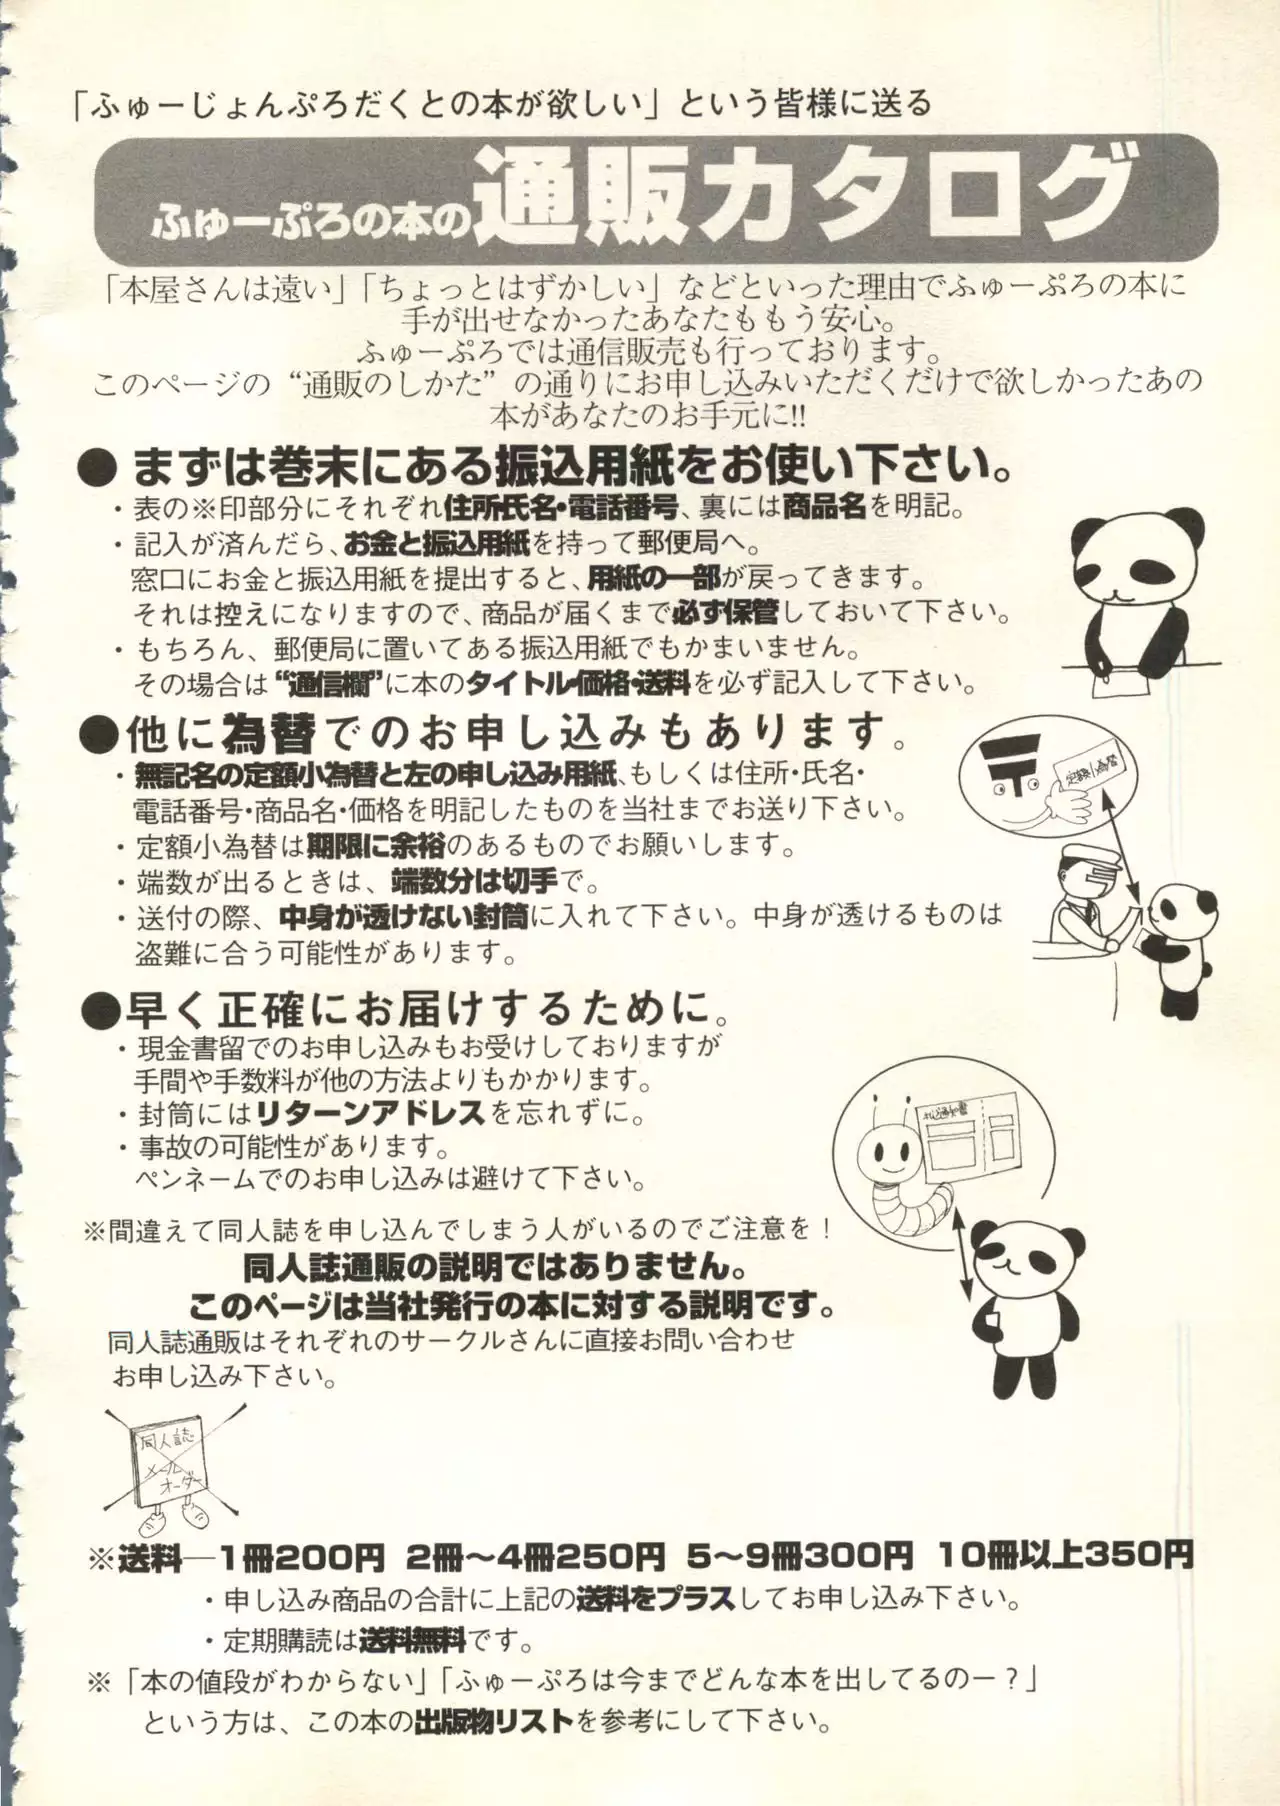 「ふゅーじょんぷろだくとの本が欲しい」という皆様に送る
ふゅーぷろの本の通販カタログ
「本屋さんは遠い」「ちょっとはずかしい」などといった理由でふゅーぷろの本に
手が出せなかったあなたももう安心。
ふゅーぷろでは通信販売も行っております。
このページの“通販のしかた”の通りにお申し込みいただくだけで欲しかったあの
本があなたのお手元に!!
●まずは巻末にある振込用紙をお使い下さい。
・表の※印部分にそれぞれ住所・氏名・電話番号、裏には商品名を明記。
・記入が済んだら、お金と振込用紙を持って郵便局へ。
窓口にお金と振込用紙を提出すると、用紙の一部が戻ってきます。
それは控えになりますので、商品が届くまで必ず保管しておいて下さい。
・もちろん、郵便局に置いてある振込用紙でもかまいません。
その場合は“通信欄”に本のタイトル・価格・送料を必ず記入して下さい。
●他に為替でのお申し込みもあります。
・無記名の定額小為替と左の申し込み用紙、もしくは住所・氏名・
電話番号・商品名・価格を明記したものを当社までお送り下さい。
定額小為替
・定額小為替は期限に余裕のあるものでお願いします。
・端数が出るときは、端数分は切手で。
・送付の際、中身が透けない封筒に入れて下さい。中身が透けるものは
盗難に合う可能性があります。
●早く正確にお届けするために。
・現金書留でのお申し込みもお受けしておりますが
手間や手数料が他の方法よりもかかります。
・封筒にはリターンアドレスを忘れずに。
・事故の可能性があります。
ペンネームでのお申し込みは避けて下さい。
※間違えて同人誌を申し込んでしまう人がいるのでご注意を!
同人誌通販の説明ではありません。
このページは当社発行の本に対する説明です。
同人誌通販はそれぞれのサークルさんに直接お問い合わせ
お申し込み下さい。
同人誌
メール
オーダー
※送料―1冊200円 2冊〜4冊250円 5〜9冊300円 10冊以上350円
・申し込み商品の合計に上記の送料をプラスしてお申し込み下さい。
・定期購読は送料無料です。
※「本の値段がわからない」「ふゅーぷろは今までどんな本を出してるのー?」
という方は、この本の出版物リストを参考にして下さい。